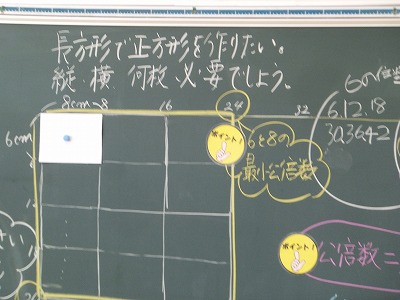 長方形で正方形を作りたい。
縦・横 何枚 必要でしょう。
8cm 8 16 24 32
6cm
ポイント!
6と8の
最小公倍数
6の倍数
6.12.18
30.36.42
12
18
ポイント!
公倍数=